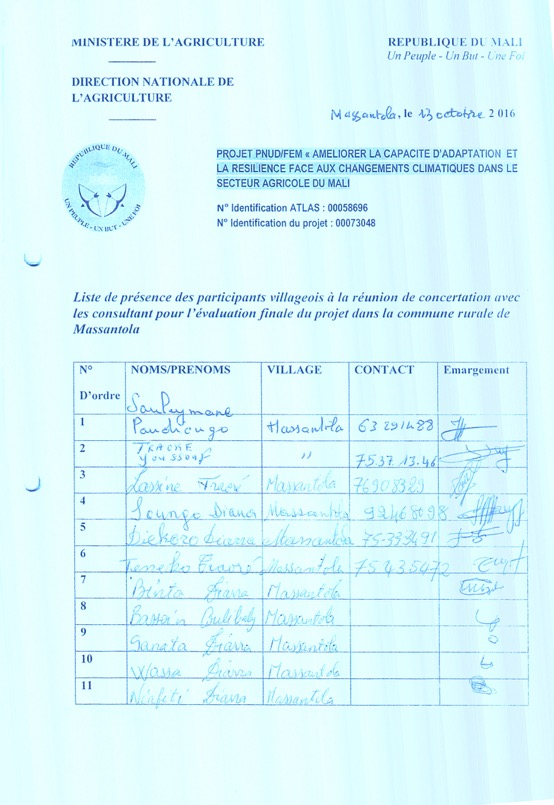 MINISTERE DE L'AGRICULTURE
REPUBLIQUE DU MALI
Un Peuple - Un But - Une Foi
DIRECTION NATIONALE DE
L'AGRICULTURE
Massantola, le 13 octobre 2016
REPUBLIQUE DU MALI
UN PEUPLE - UN BUT - UNE FOI
PROJET PNUD/FEM « AMELIORER LA CAPACITE D'ADAPTATION ET
LA RESILIENCE FACE AUX CHANGEMENTS CLIMATIQUES DANS LE
SECTEUR AGRICOLE DU MALI
N° Identification ATLAS : 00058696
N° Identification du projet : 00073048
Liste de présence des participants villageois à la réunion de concertation avec
les consultant pour l'évaluation finale du projet dans la commune rurale de
Massantola
N° D'ordre NOMS/PRENOMS VILLAGE CONTACT Emargement
Souleymane
1 Massantola 63 291488
2 TRAORE Youssouf " 7537 13.46
3 Lassine Massantola 76908329
4 Diarra Massantola 92468098
5 Diarra Massantola 75-393491
6 Massantola 75435472
7 Binta Diarra Massantola
8 Massantola
9 Sanata Diarra Massantola
10 Wassa Diarra Massantola
11 Diarra Massantola